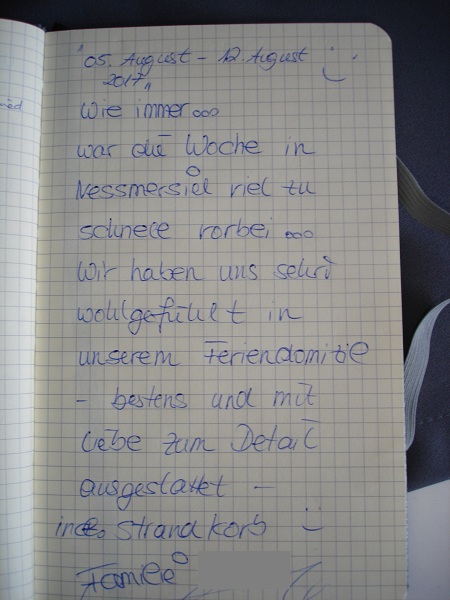 "05. August - 12. August
2017"
Wie immer...
war die Woche in
Nessmersiel viel zu
schnell vorbei...
Wir haben uns sehr
wohlgefühlt in
unserem Feriendomizil
- bestens und mit
Liebe zum Detail
ausgestattet -
incl. Strandkorb
Familie